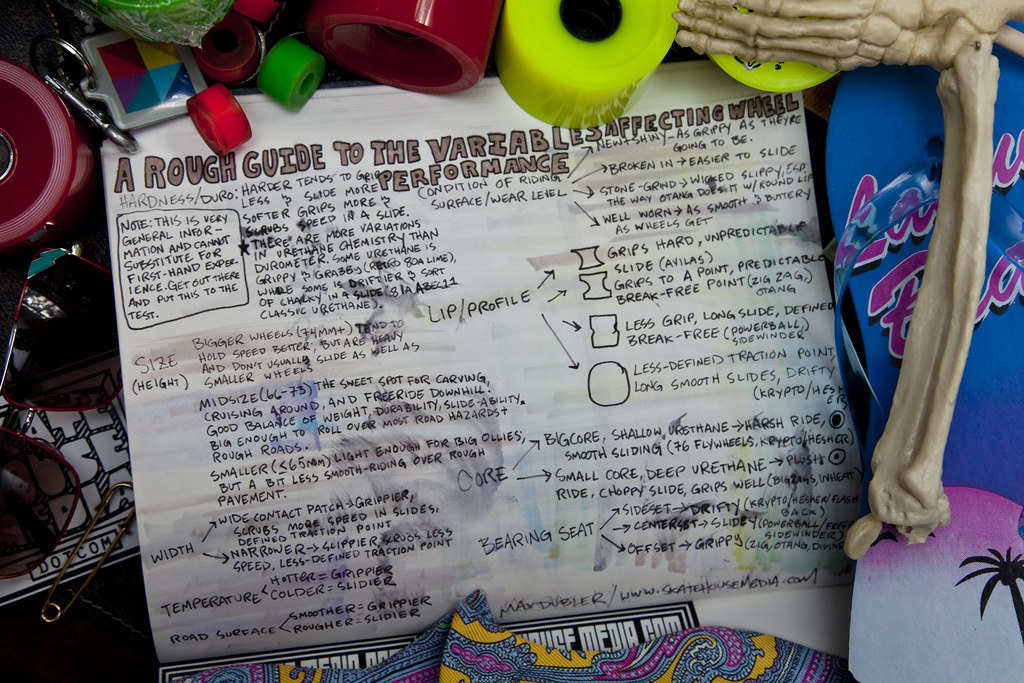 A ROUGH GUIDE TO THE VARIABLES AFFECTING WHEEL
PERFORMANCE
HARDNESS/DURO: HARDER TENDS TO GRIP
LESS & SLIDE MORE
SOFTER GRIPS MORE &
SCRUBS SPEED IN A SLIDE.
★ THERE ARE MORE VARIATIONS
IN URETHANE CHEMISTRY THAN
DUROMETER. SOME URETHANE IS
GRIPPY & GRABBY (RETRO 80A LIME),
WHERE SOME IS DRIFTIER & SORT
OF CHALKY IN A SLIDE (81A ABEC 11
CLASSIC URETHANE).
NOTE: THIS IS VERY
GENERAL INFOR-
MATION AND CANNOT
SUBSTITUTE FOR
FIRST-HAND EXPER-
IENCE. GET OUT THERE
AND PUT THIS TO THE
TEST.
SIZE
(HEIGHT)
BIGGER WHEELS (74MM+) TEND TO
HOLD SPEED BETTER, BUT ARE HEAVY
AND DON'T USUALLY SLIDE AS WELL AS
SMALLER WHEELS
MIDSIZE (66-73) THE SWEET SPOT FOR CARVING,
CRUISING AROUND, AND FREERIDE DOWNHILL.
GOOD BALANCE OF WEIGHT, DURABILITY, SLIDE-ABILITY.
BIG ENOUGH TO ROLL OVER MOST ROAD HAZARDS +
ROUGH ROADS.
SMALLER (≤65MM) LIGHT ENOUGH FOR BIG OLLIES,
BUT A BIT LESS SMOOTH-RIDING OVER ROUGH
PAVEMENT.
WIDTH
WIDE CONTACT PATCH → GRIPPIER,
SCRUBS MORE SPEED IN SLIDES,
DEFINED TRACTION POINT
NARROWER → SLIPPIER, SCRUBS LESS
SPEED, LESS-DEFINED TRACTION POINT
TEMPERATURE < HOTTER = GRIPPIER
COLDER = SLIDIER
ROAD SURFACE < SMOOTHER = GRIPPIER
ROUGHER = SLIDIER
CONDITION OF RIDING
SURFACE/WEAR LEVEL
NEW + SHINY - AS GRIPPY AS THEY'RE
GOING TO BE.
BROKEN IN → EASIER TO SLIDE
STONE-GRIND → WICKED SLIPPY, ESP.
THE WAY OTANG DOES IT W/ ROUND LIP
WELL WORN → AS SMOOTH & BUTTERY
AS WHEELS GET
LIP/PROFILE
GRIPS HARD, UNPREDICTABLE
SLIDE (AVILAS)
GRIPS TO A POINT, PREDICTABLE
BREAK-FREE POINT (ZIG ZAG),
OTANG
LESS GRIP, LONG SLIDE, DEFINED
BREAK-FREE (POWERBALL)
SIDEWINDER
LESS-DEFINED TRACTION POINT,
LONG SMOOTH SLIDES, DRIFTY
(KRYPTO/HESH
CORE
BIG CORE, SHALLOW, URETHANE → HARSH RIDE,
SMOOTH SLIDING (76 FLYWHEELS, KRYPTO/HESHER)
SMALL CORE, DEEP URETHANE → PLUSH
RIDE, CHOPPY SLIDE, GRIPS WELL (BIGZIGS, INHEAT)
BEARING SEAT
SIDESET → DRIFTY (KRYPTO/HESHER/FLASH
BACK)
CENTERSET → SLIDEY (POWERBALL/FREE
SIDEWINDER)
OFFSET → GRIPPY (ZIG, OTANG, DIVINE
MAX DUBLER / WWW.SKATEHOUSEMEDIA.COM
DOTCOM